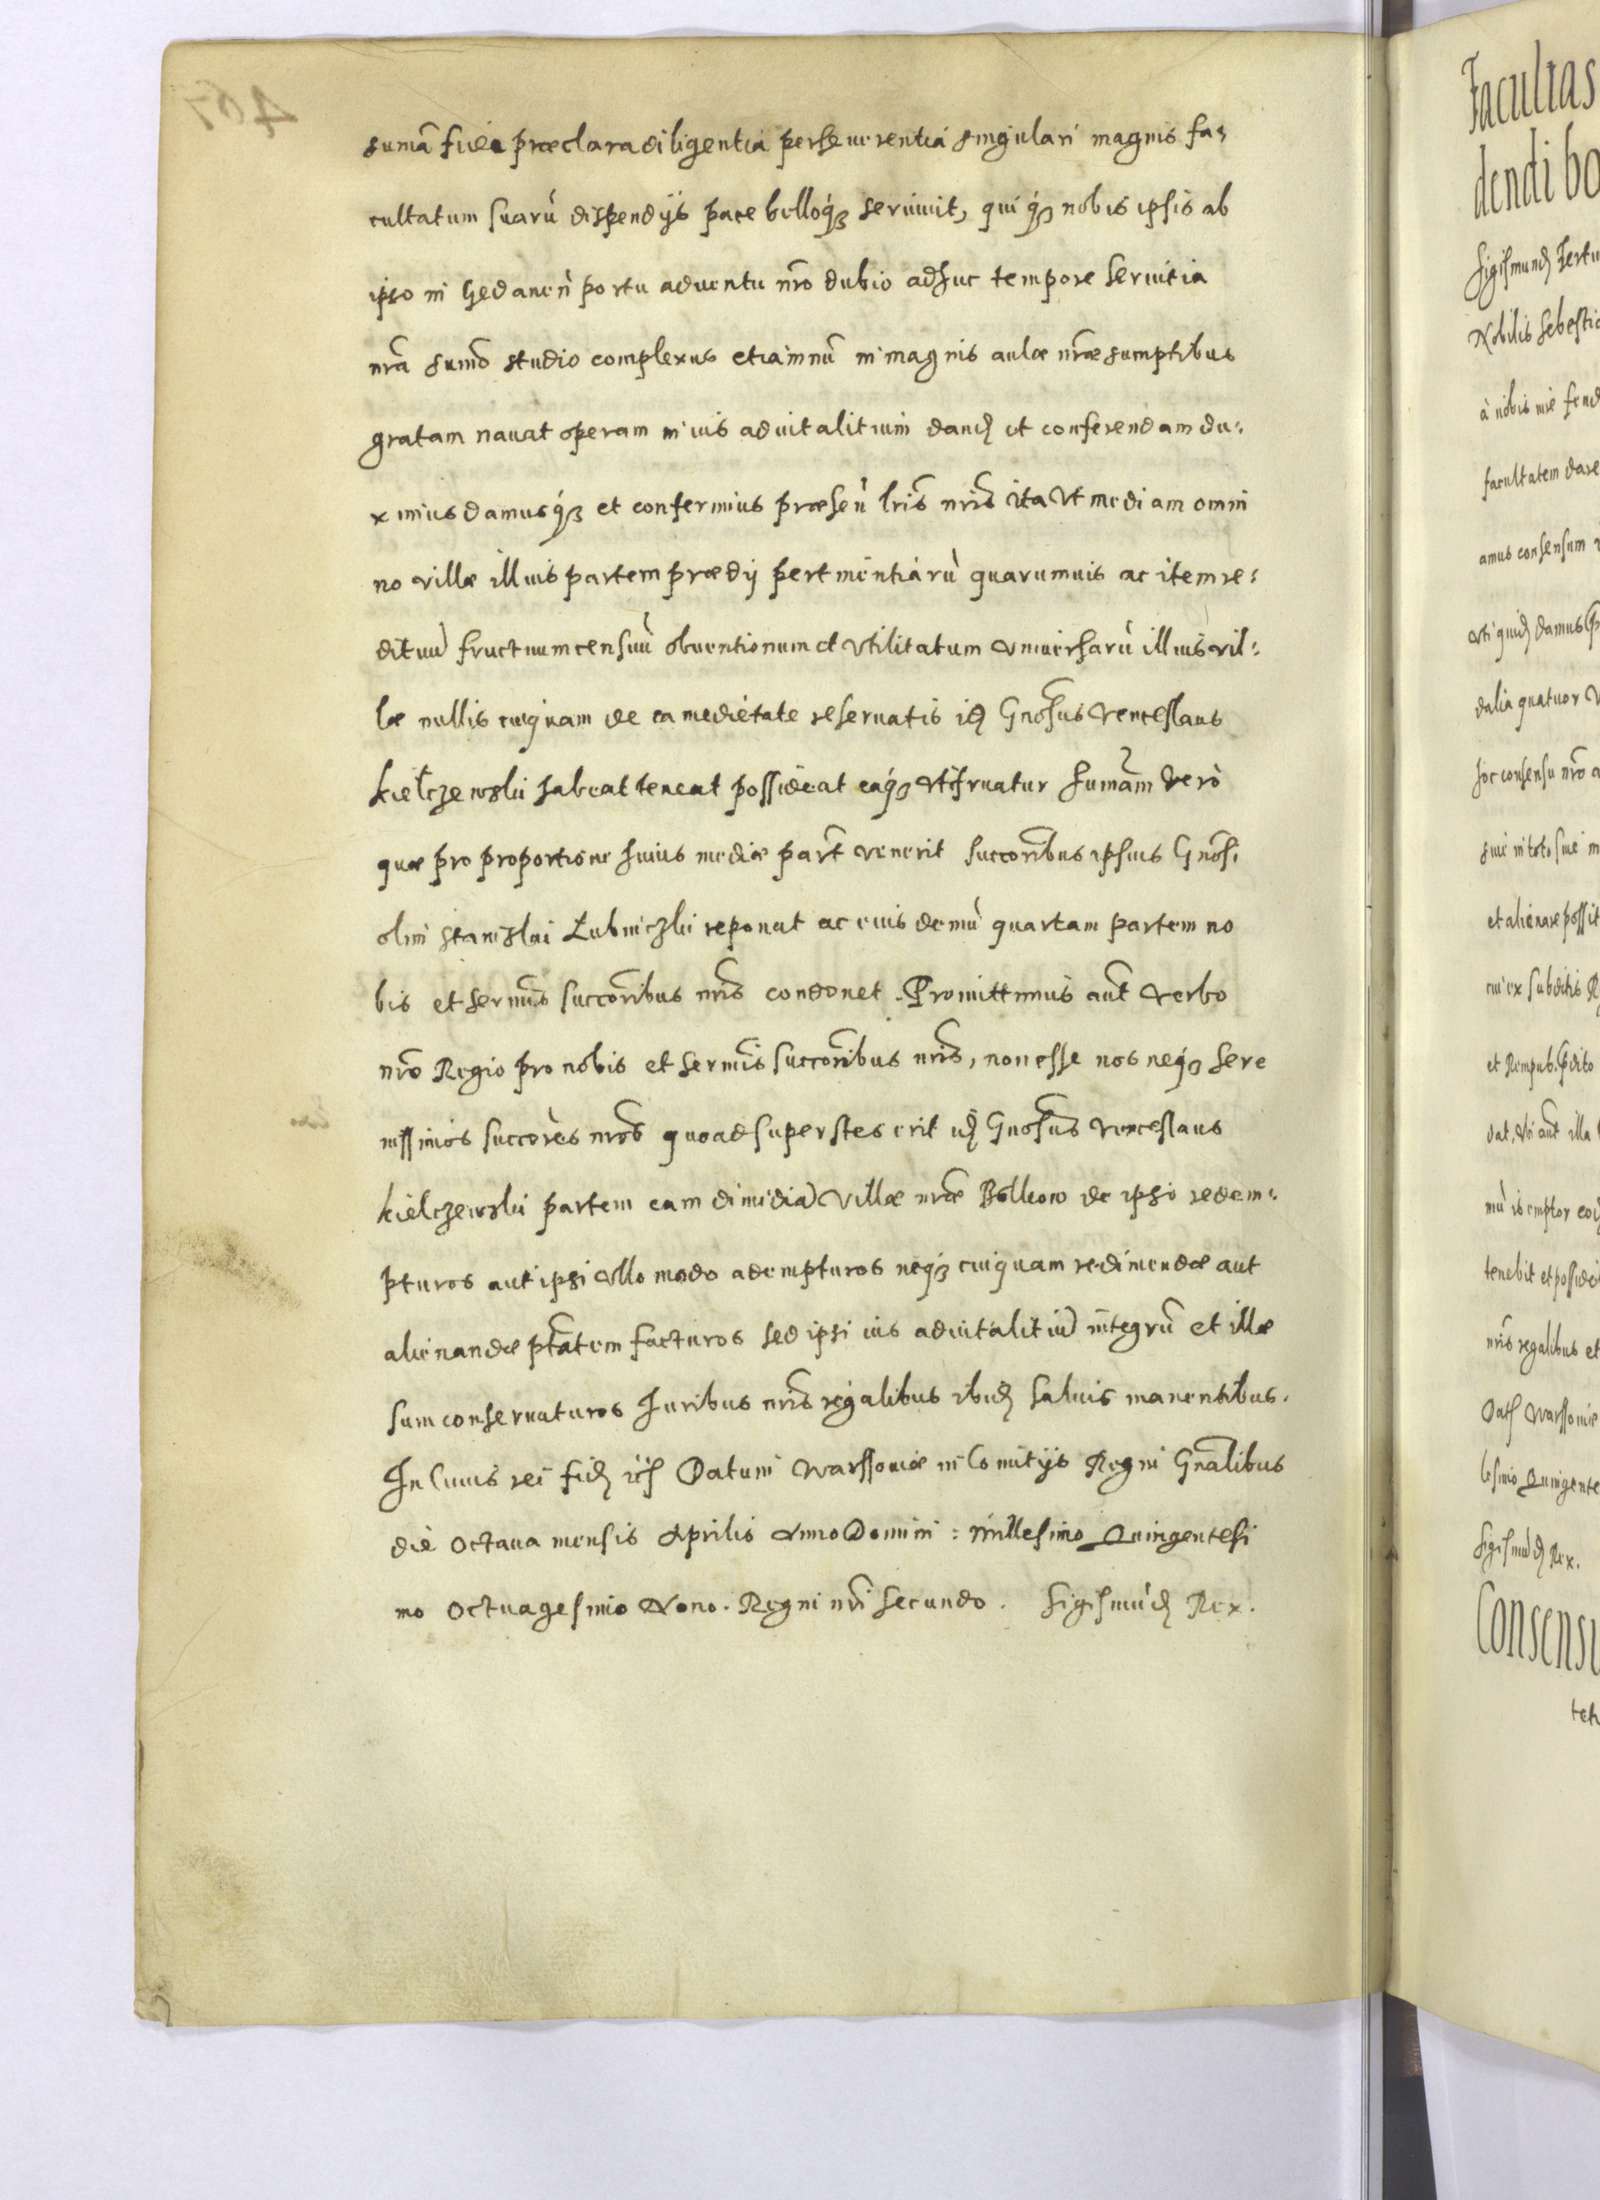 sumā fide præclara diligentia perseuerentia singulari magnis fa-
cultatum suarù dispendijs pace belloq́ꝫ seruiuit, qui q́ꝫ nobis ipsis ab
ipso in Gedanen̄ portu aduentu nr̄o dubio adhuc tempore seruitia
nr̄a sum̄o studio complexus etiamnū in magnis aulæ nr̄æ sumptibus
gratam nauat operam ius aduitalitium dand et conferendam du-
ximus damusq́ꝫ et conferimus præsen̄ lr̄is nr̄is ita vt mediam omni
no villæ illius partem prædij pertinentiarù quarumuis ac item re-
dituū fructuum censuū obuentionum et vtilitatum vniuersarù illius vil-
læ nullis cuiquam de ea medietate reseruatis id Gn̄osus Venceslaus
Kielczewski habeat teneat possideat eaq́ꝫ vtifruatur sumam̄ verò
quæ pro proportione huius mediæ part̄ venerit succoribus ipsius Gnosi
olim Stanislai Lubniczki reponat ac eius demù quartam partem no
bis et sermis succoribus nr̄is condonet. Promittimus aut̄ verbo
nr̄o Regio pro nobis et sermis succoribus nr̄is, non esse nos neq́ꝫ sere
nissimos succores nr̄os quoad superstes erit id Gnosus Venceslaus
Kielczewski partem eam dimidiā villæ nr̄æ Bolkow de ipso redem-
pturos aut ipsi vllo modo adempturos neq́ꝫ cuiquam redimendæ aut
alienandæ ptātem facturos sed ipsi ius aduitalitiū integrū et illæ
sum conseruaturos Iuribus nr̄is regalibus ibid saluis manentibus.
In Cuius rei fid etc Datum Warssouiæ in Comitijs Regni Gnalibus
die octaua mensis Aprilis Anno Domini: Millesimo Quingentesi
mo octuagesimo Nono. Regni nr̄i secundo. Sigismūd Rex.
Facultas
dendi bo
Sigismund Tertiu
Nobilis Sebestia
à nobis
facultatem dare
amus consensum
vti quid damus
dalia quatuor V
hoc consensu nr̄o a
siue in toto siue in
et alienare possit
cui ex subditis R
et Rempub.
dat, Vbi aut̄ illa
mù is emptor
tenebit et posside
nr̄is regalibus et
Dat Warssouiæ
lesimo Quingente
Sigismūd Rex.
Consensu